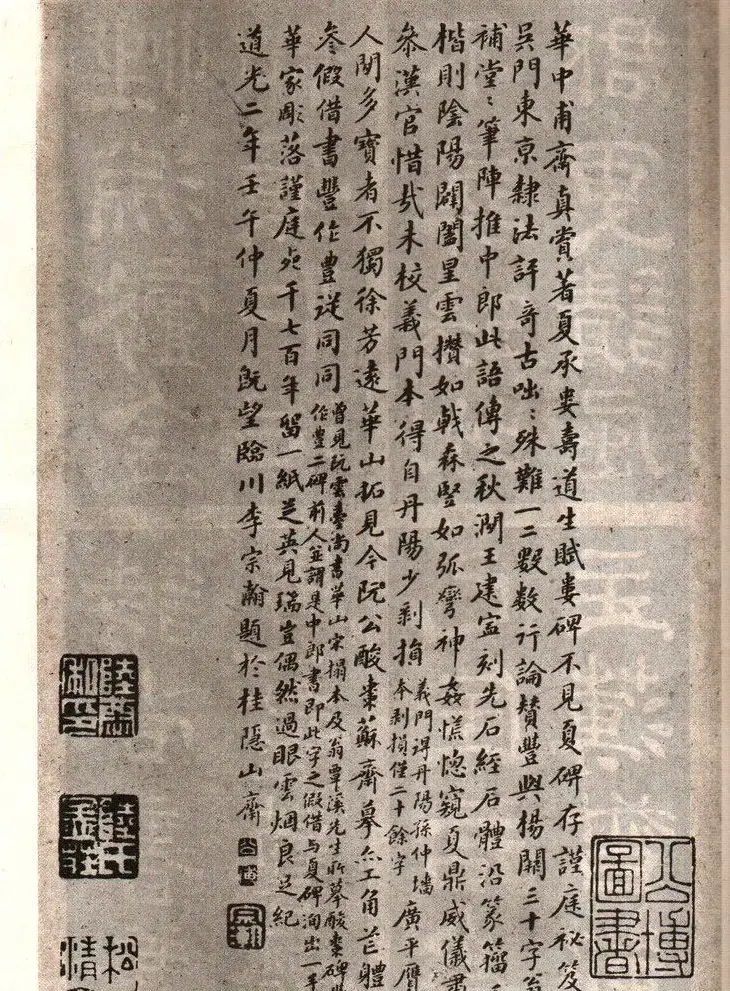 華中甫齋真賞著夏承婁壽道生賦婁碑不見夏碑存謹庭祕笈
吴門東京隸法評奇古咄〻殊難一二數數行論贊豐與楊闕三十字翁
補堂〻筆陣推中郎此語傳之秋澗王建寍刻先石經石體沿篆籀
楷則陰陽闢闔星雲攢如戟森豎如弧彎神姦慌惚窺夏鼎威儀肅
叅漢官惜哉未校義門本得自丹陽少剥損義門謂丹陽孫仲墻
本剥損僅二十餘字廣平贋
人間多寶者不獨徐芳遠華山拓見今阮公酸棗蘇齋摹亦工角芒體
叅假借書豐作豊從同同曾見阮雲臺尚書華山宋搨本及翁覃溪先生所摹酸棗碑豐
作豊二碑前人並謂是中郎書即此字之假借与夏碑洵出一手
華家彫落謹庭死千七百年留一紙芝英見瑞豈偶然過眼雲烟良足紀
道光二年壬午仲夏月既望臨川李宗瀚題於桂隱山齋
陸氏
松
情
圖書